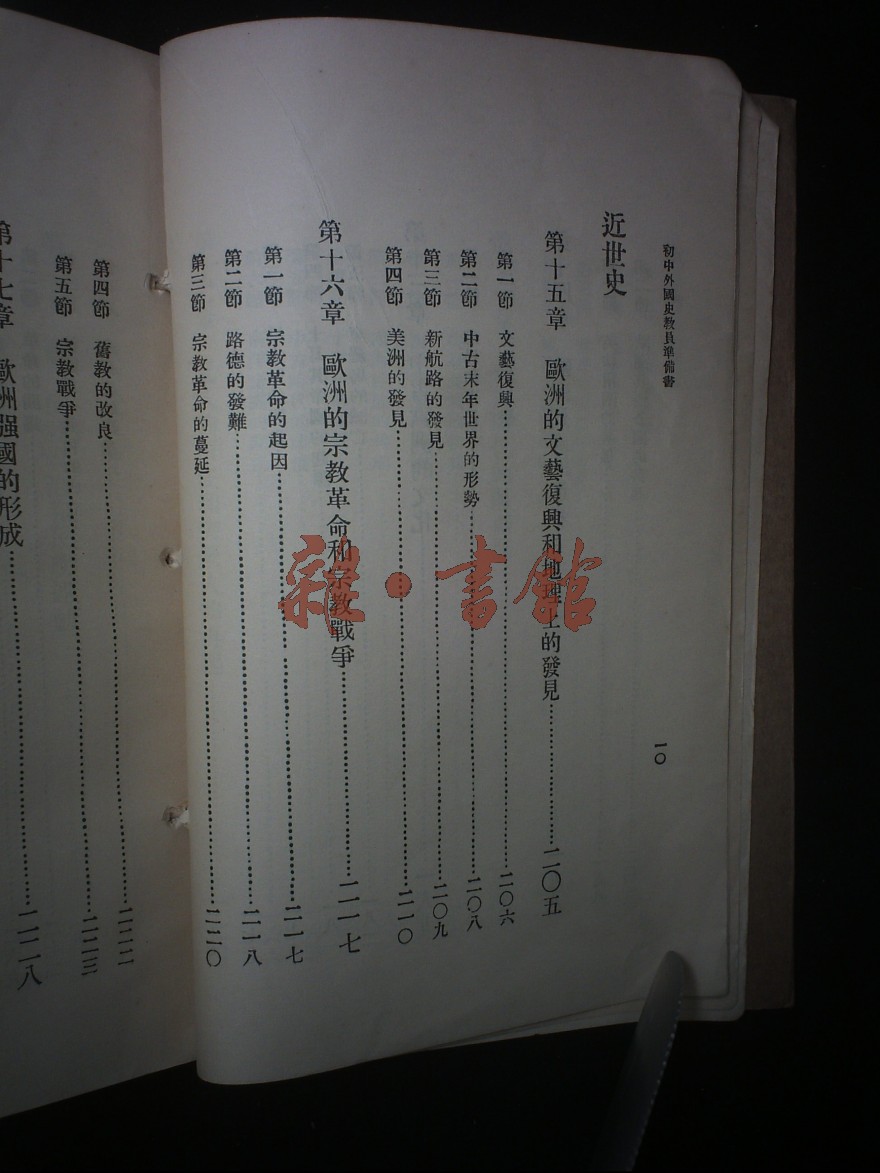 初中外國史教員準備書
一〇
近世史
第十五章 歐洲的文藝復興和地理上的發見……二〇五
第一節 文藝復興……二〇六
第二節 中古末年世界的形勢……二〇八
第三節 新航路的發見……二〇九
第四節 美洲的發見……二一〇
第十六章 歐洲的宗教革命和宗教戰爭……二一七
第一節 宗教革命的起因……二一七
第二節 路德的發難……二一八
第三節 宗教革命的蔓延……二二〇
第四節 舊教的改良……二二二
第五節 宗教戰爭……二二三
第十七章 歐洲强國的形成……二二八
雜·書館